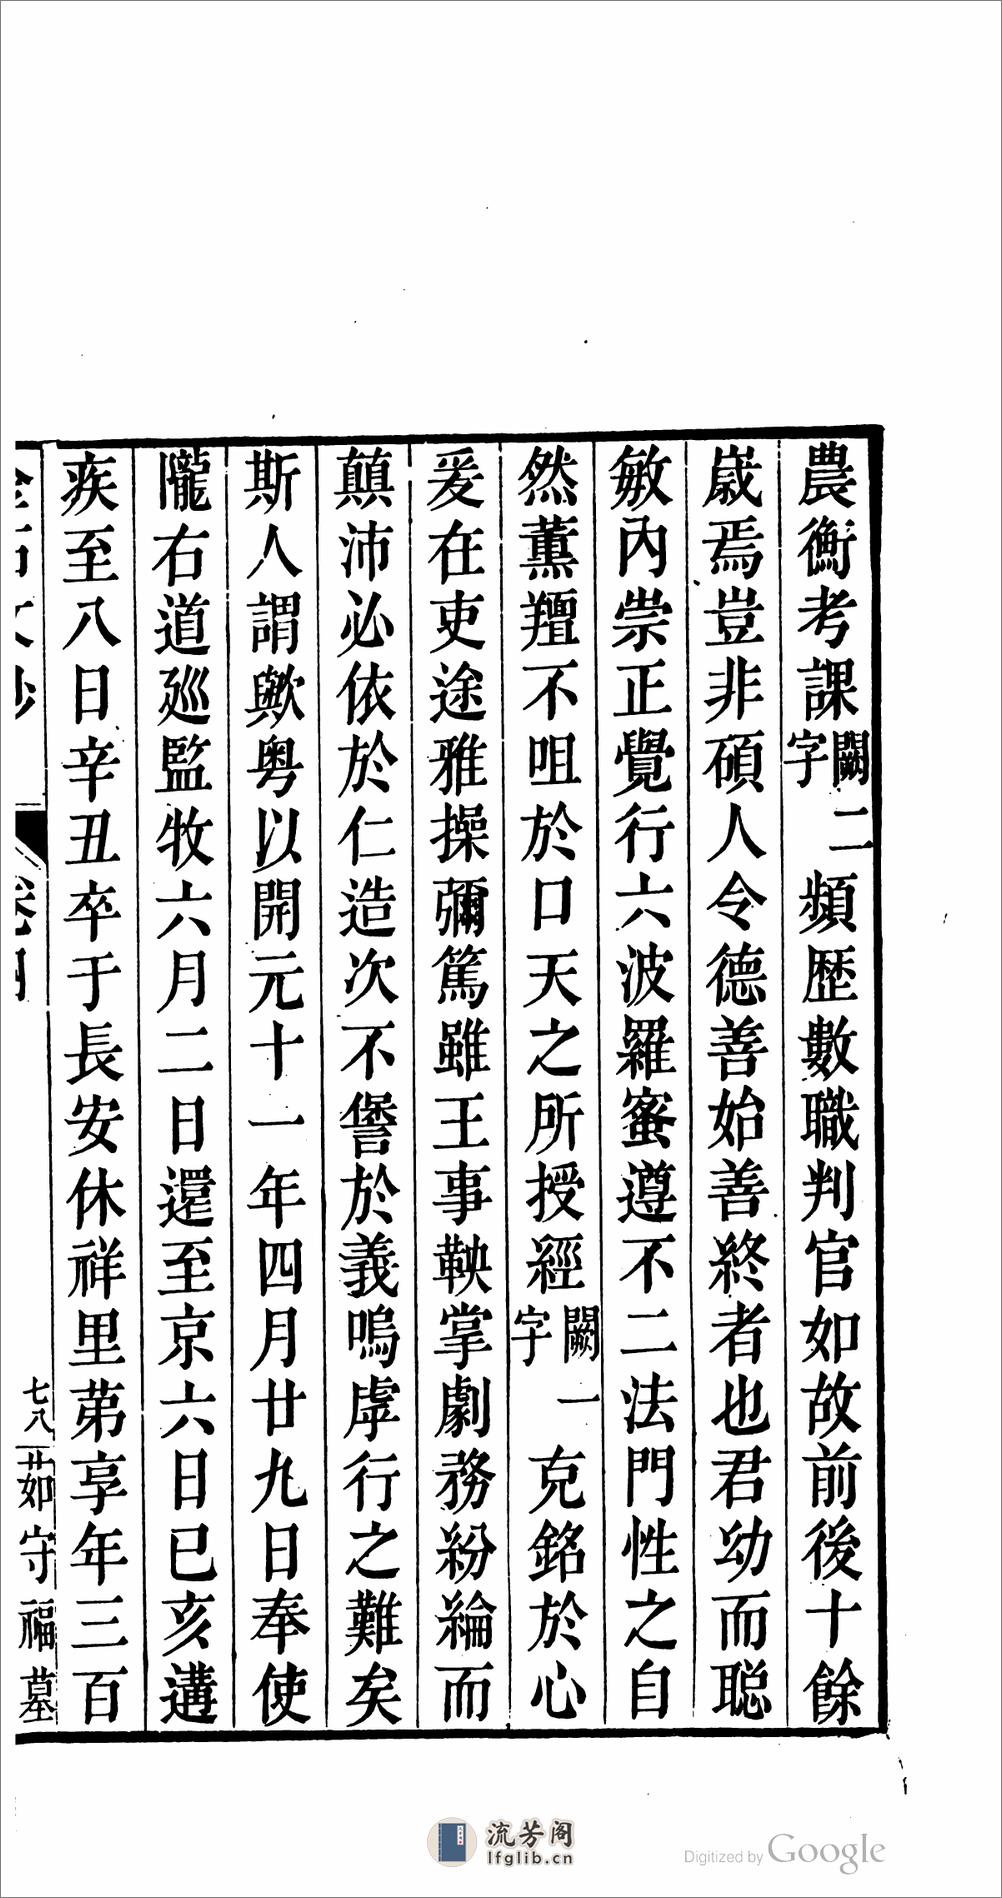 農衡考課闕二字頻歷數職判官如故前後十餘
歲焉豈非碩人令德善始善終者也君幼而聡
敏內崇正覺行六波羅蜜遵不二法門性之自
然薰羶不咀於口天之所授經闕一字克銘於心
爰在吏途雅操彌篤雖王事鞅掌劇務紛綸而
顛沛必依於仁造次不諐於義嗚虖行之難矣
斯人謂歟粤以開元十一年四月廿九日奉使
隴右道廵監牧六月二日還至京六日已亥遘
疾至八日辛丑卒于長安休祥里苐享年三百
金石文鈔 卷四 七八 茹守福墓
流芳阁
lfglib.cn
Digitized by Google